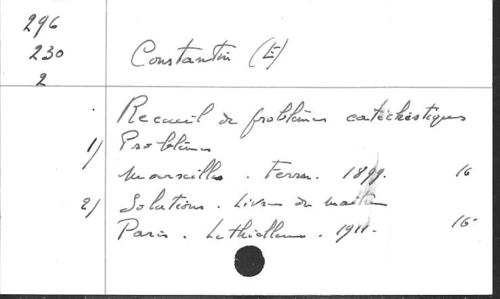 296
230
2
Constantin (E)
Recueil de problèmes catéchistiques
1) Problèmes
Marseille. Ferran. 1899. 16
2) Solutions. Livre du maître
Paris. Lethielleux. 1911. 16